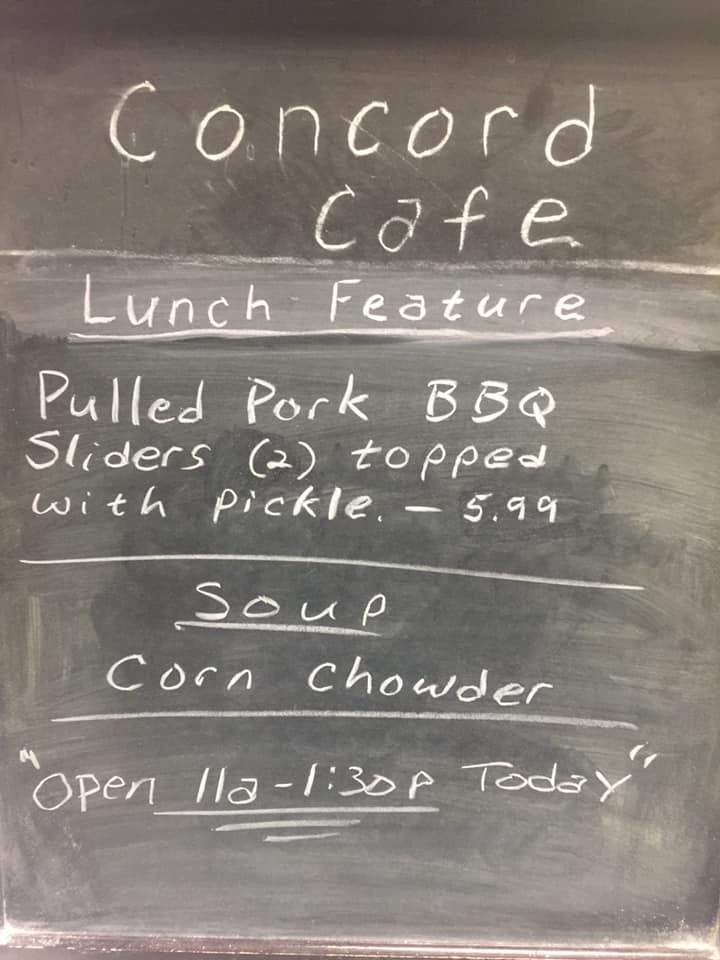 Concord
Cafe
Lunch Feature
Pulled Pork BBQ
Sliders (2) topped
with pickle. - 5.99
Soup
Corn Chowder
"Open 11a-1:30p Today"